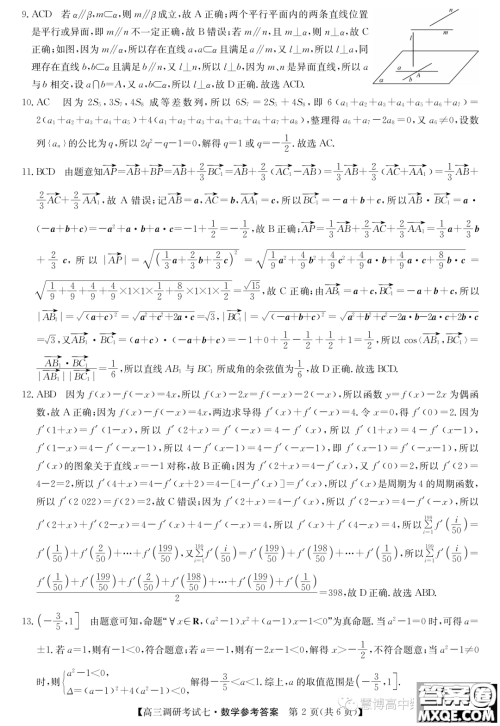 9. ACD 若 α∥β,m⊂α,则 m∥β成立,故 A 正确;两个平行平面内的两条直线位置
是平行或异面,即 m∥n 不一定正确,故 B 错误;若 m∥n,且 m⊥α,则 n⊥α,故 C
正确;如图,因为 m∥α,所以存在直线 a,a⊂α 且满足 a∥m,又 l⊥m,所以 l⊥a,同
理存在直线 b,b⊂α 且满足 b∥n,又 l⊥n,所以 l⊥b,因为 m、n 是异面直线,所以 a
与 b 相交,设 a∩b=A,又 a,b⊂α,所以 l⊥α,故 D 正确. 故选 ACD.
10. AC 因为 2S₅,3S₇,4S₈ 成等差数列,所以 6S₇=2S₅+4S₈,即 6(a₁+a₂+a₃+a₄+a₅+a₆+a₇)=
2(a₁+a₂+a₃+a₄+a₅)+4(a₁+a₂+a₃+a₄+a₅+a₆+a₇+a₈),整理得 a₆+a₇-2a₈=0,又 a₆≠0,设数
列{aₙ}的公比为 q,所以 2q²-q-1=0,解得 q=1 或 q=-1/2. 故选 AC.
11. BCD 由题意知AP=AB+BP=AB+2/3 BC₁=AB+2/3(AC₁-AB)=1/3 AB+2/3(AC+AA₁)=1/3 AB+
2/3 AC+2/3 AA₁,故 A 错误;记AB=a,AC=b,AA₁=c,所以BC₁=-a+b+c,所以AB·BC₁=a·
(-a+b+c)=-a²+a·b+a·c=-1+1/2=-1/2,故 B 正确;AP=1/3 AB+2/3 AC+2/3 AA₁=1/3 a+2/3 b
+2/3 c,所以|AP|=√(1/3 a+2/3 b+2/3 c)²=√(1/9 a²+4/9 b²+4/9 c²+4/9 a·b+4/9 a·c+8/9 b·c)=
√(1/9+4/9+4/9+4/9×1×1×1/2+8/9×1×1×1/2)=√15/3,故 C 正确;由AB₁=a+c,BC₁=-a+b+c,所以
|AB₁|=√(a+c)²=√(a²+c²+2a·c)=√3,|BC₁|=√(-a+b+c)²=√(a²+b²+c²-2a·b-2a·c+2b·c)
=√3,又AB₁·BC₁=(a+c)·(-a+b+c)=-1+0+1/2-1/2+1/2+1=1/2,所以 cos⟨AB₁,BC₁⟩=
AB₁·BC₁/|AB₁||BC₁|=1/6,所以直线 AB₁ 与 BC₁ 所成角的余弦值为1/6,故 D 正确. 故选 BCD.
12. ABD 因为 f(x)-f(-x)=4x,所以 f(x)-2x=f(-x)-2(-x),所以函数 y=f(x)-2x 为偶函
数,故 A 正确;因为 f(x)-f(-x)=4x,两边求导得 f′(x)+f′(-x)=4. 令 x=0,得 f′(0)=2. 因为
f′(1+x)=f′(1-x),所以 f′(2+x)=f′(-x)=4-f′(x),所以 f′(1+x)=4-f′(x-1),
f′(1-x)=4-f′(-x-1),所以 4-f′(x-1)=4-f′(-x-1),即 f′(x-1)=f′(-x-1),所以
f′(x)的图象关于直线 x=-1 对称,故 B 正确;因为 f′(2+x)=4-f′(x),又 f′(0)=2,所以 f′(2)=
4-2=2,所以 f′(4+x)=4-f′(x+2)=4-[4-f′(x)]=f′(x),所以 f′(x)是周期为 4 的周期函数,
所以 f′(2 022)=f′(2)=2,故 C 错误;因为 f′(2+x)=4-f′(x),所以 f′(2-x)=4-f′(-x),所以
f′(2+x)+f′(2-x)=4-f′(x)+4-f′(-x)=4,所以 f′(x)+f′(4-x)=4,所以 ∑f′(i/50)=
f′(1/50)+f′(2/50)+…+f′(199/50),又∑f′(i/50)=f′(199/50)+f′(198/50)+…+f′(1/50),所以∑f′(i/50)=
f′(1/50)+f′(199/50)+f′(2/50)+f′(198/50)+…+f′(199/50)+f′(1/50)/2=398,故 D 正确. 故选 ABD.
13. (-3/5,1] 由题意可知,命题“∀x∈R,(a²-1)x²+(a-1)x-1<0”为真命题. 当 a²-1=0 时,可得 a=
±1. 若 a=1,则有-1<0,符合题意;若 a=-1,则有-2x-1<0,解得 x>-1/2,不符合题意;当 a²-1≠0
时,则{a²-1<0, Δ=(a-1)²+4(a²-1)<0, 解得-3/5<a<1. 综上,a 的取值范围是(-3/5,1].
【高三调研考试七·数学参考答案 第 2 页(共 6 页)】
答案圈